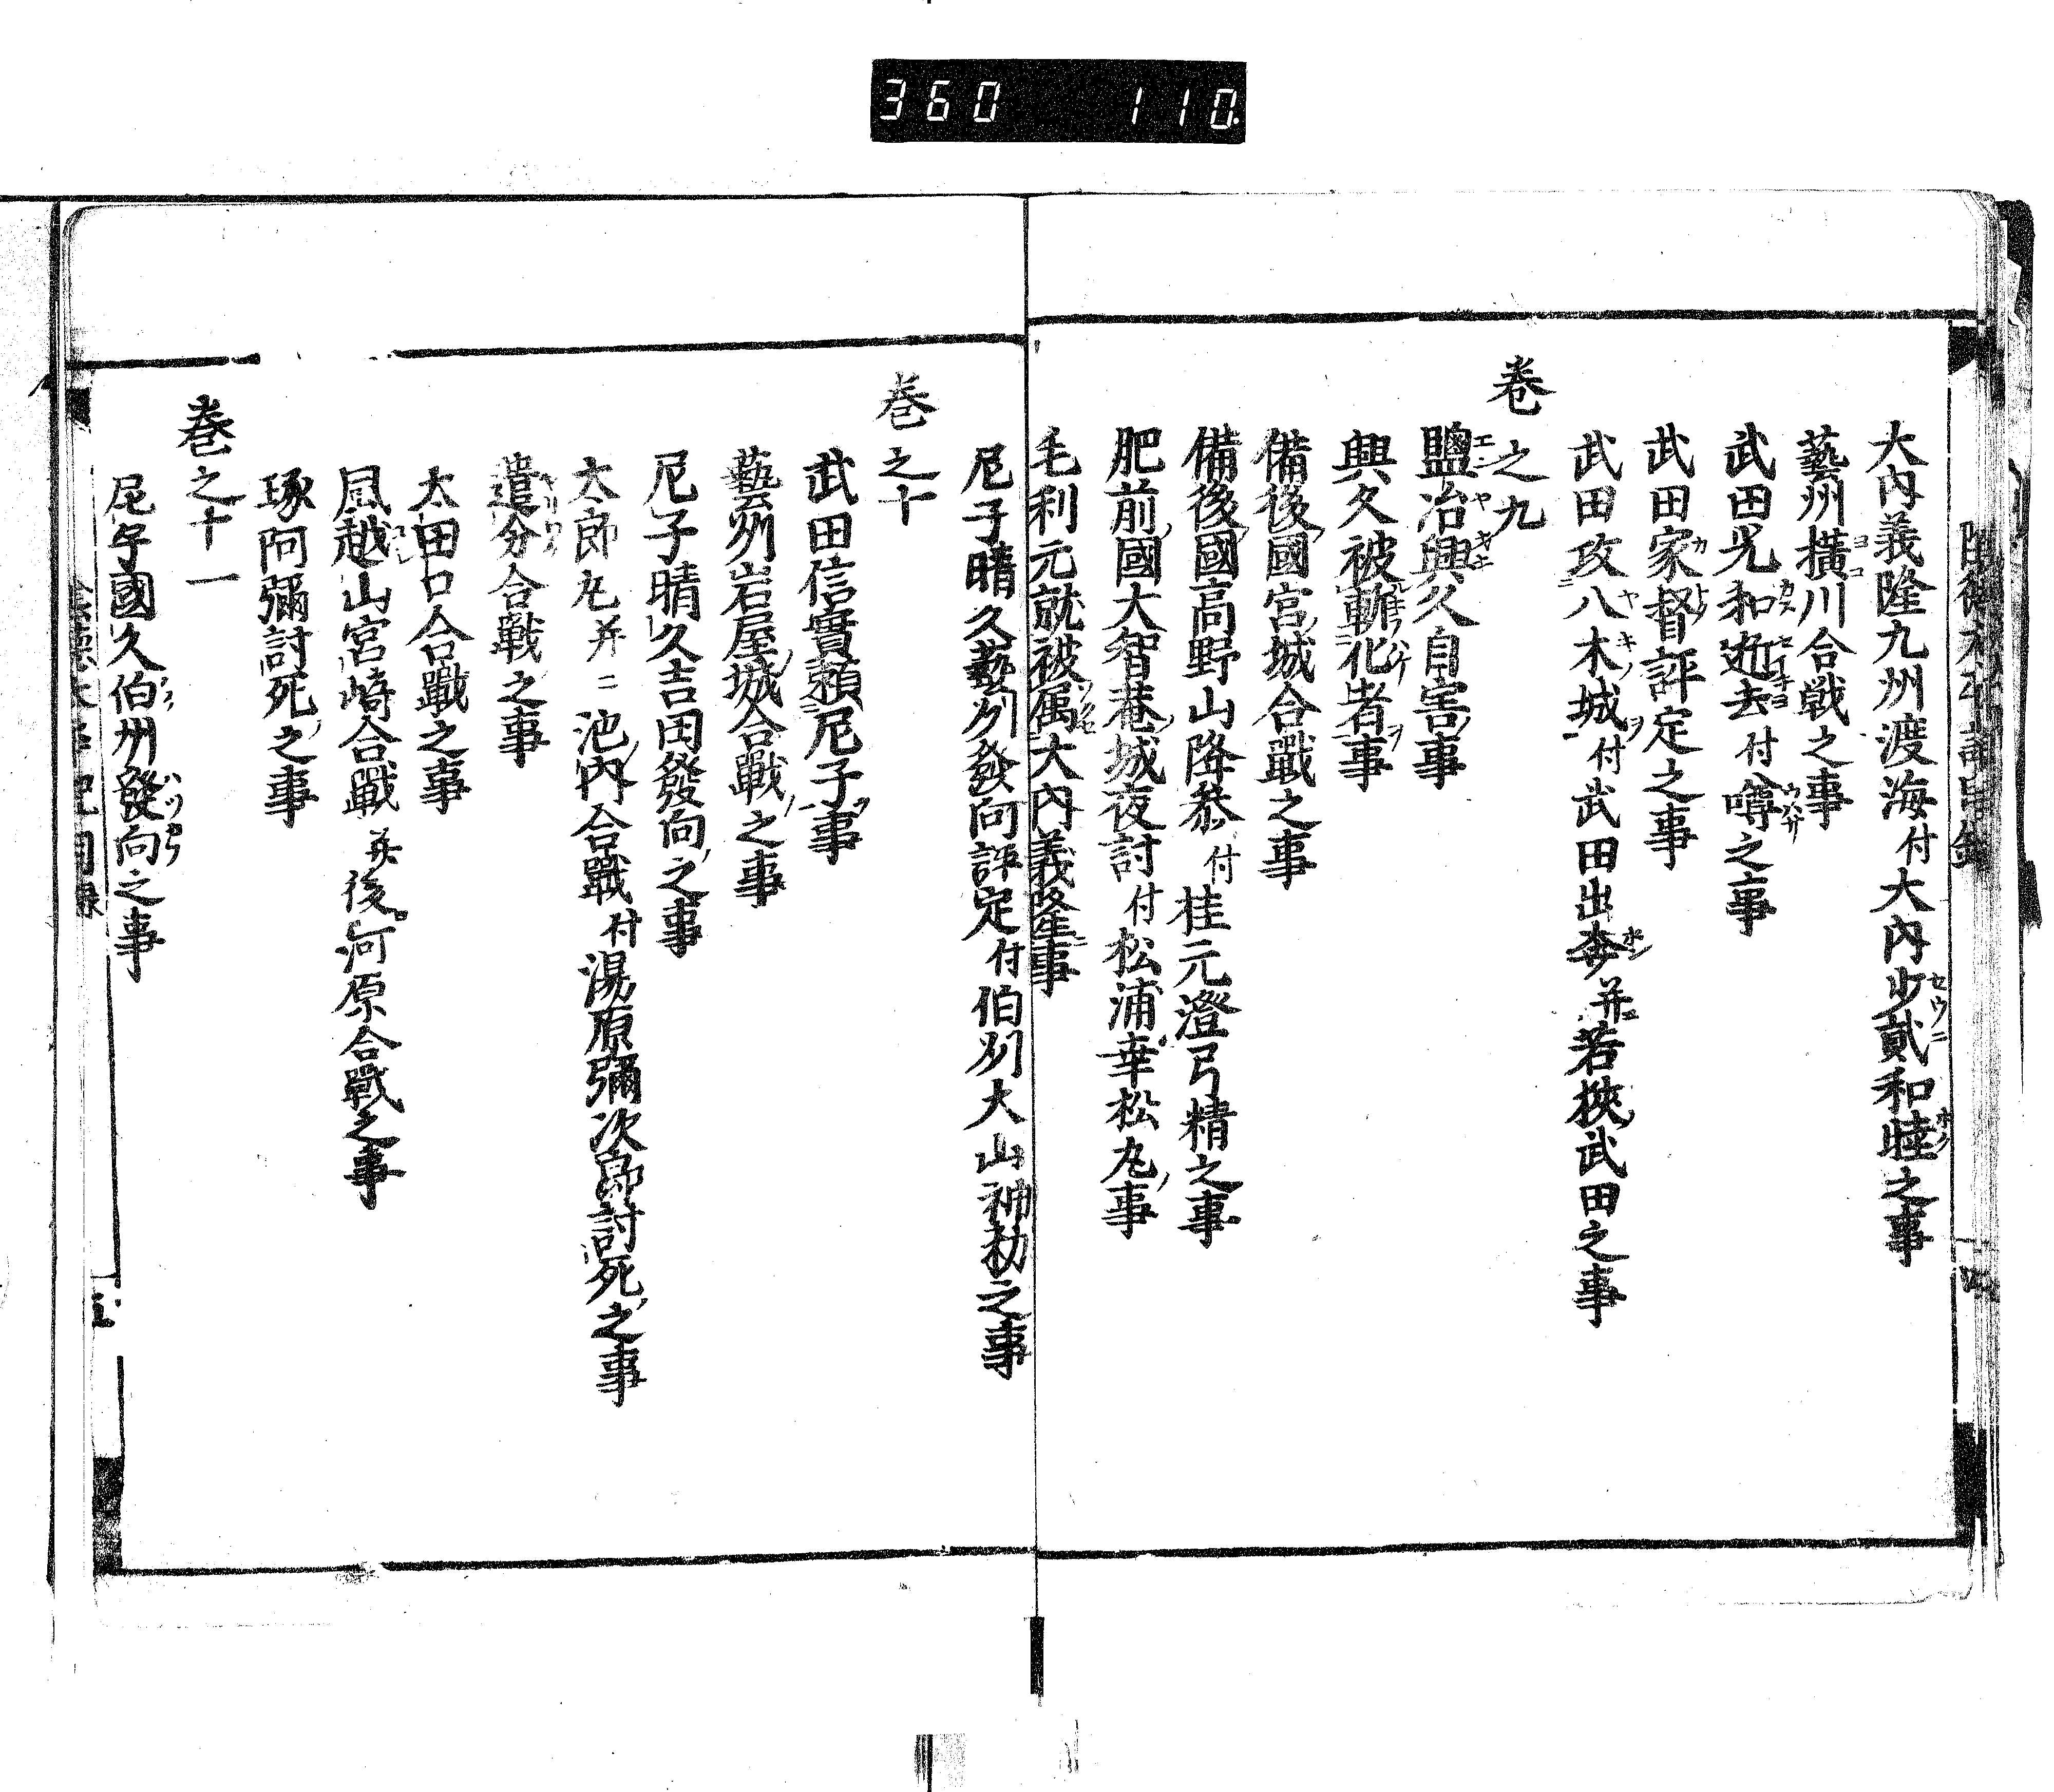 360 110
大内義隆九州渡海付大内少貳和睦之事
藝州横川合戦之事
武田光和逝去付噂之事
武田家督評定之事
武田攻八木城付武田出奔并若狹武田之事
巻之九
鹽冶興久自害事
興久被斬化者事
備後國宮城合戰之事
備後國高野山降參付桂元澄弓精之事
肥前國大智菴城夜討付松浦幸松丸事
毛利元就被属大内義隆事
尼子晴久藝州發向評定付伯州大山神事之事
巻之十
武田信實頼尼子事
藝州岩屋城合戰之事
尼子晴久吉田發向之事
太郎丸并ニ池内合戰付湯原彌次郎討死之事
遣分合戰之事
太田口合戰之事
風越山宮崎合戰并後河原合戰之事
琢阿彌討死之事
巻之十一
尼子國久伯州發向之事